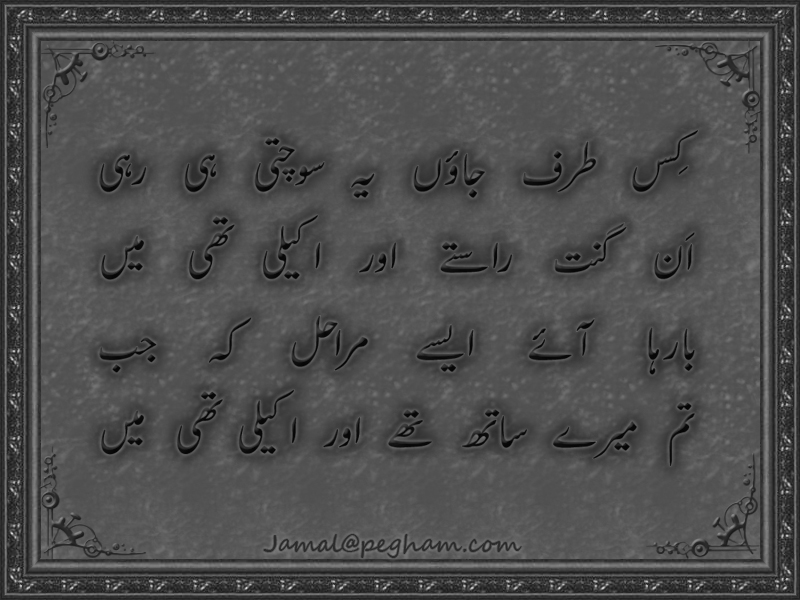 کِس طرف جاؤں یہ سوچتی ہی رہی
اَن گنت راستے اور اکیلی تھی میں
بارہا آئے ایسے مراحل کہ جب
تم میرے ساتھ تھے اور اکیلی تھی میں
Jamal@pegham.com